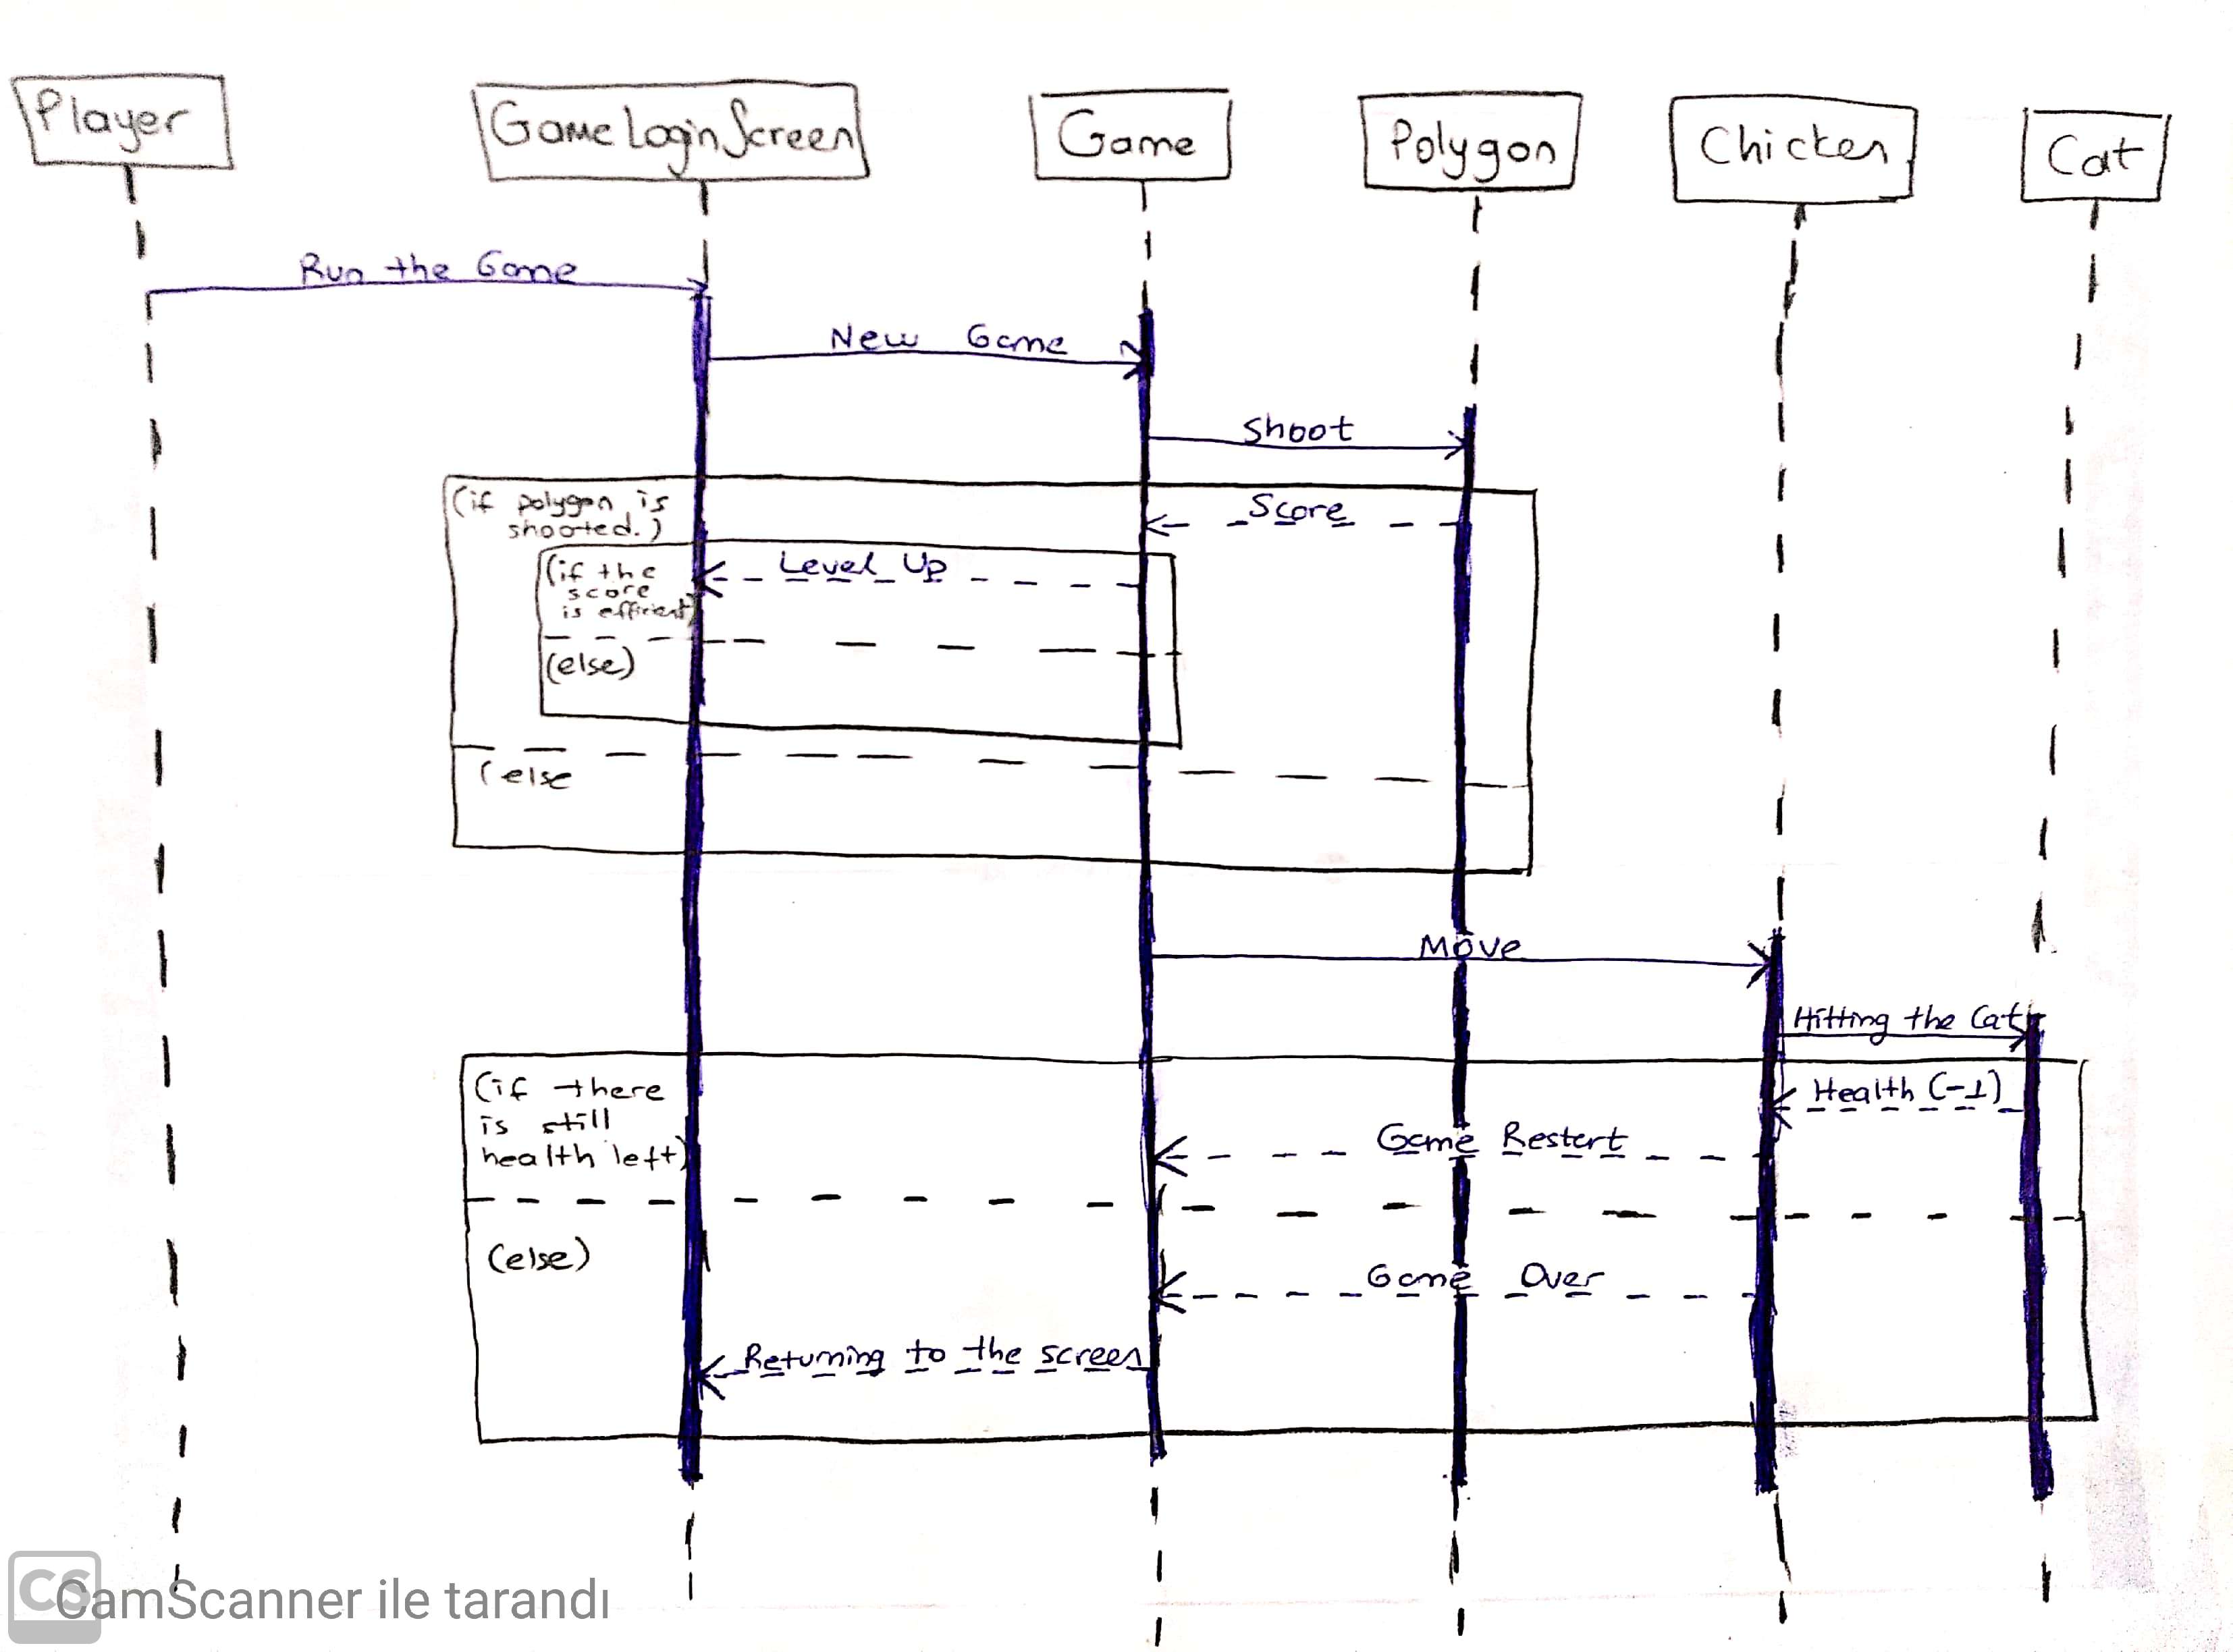 Player
GameLoginScreen
Game
Polygon
Chicken
Cat
Run the Game
New Game
Shoot
(if polygon is
shooted.)
Score
(if the
score
is efficient)
Level Up
(else)
(else
Move
Hitting the Cat
(if there
is still
health left)
Health (-1)
Game Restart
(else)
Game Over
Returning to the screen
CS
CamScanner ile tarandı